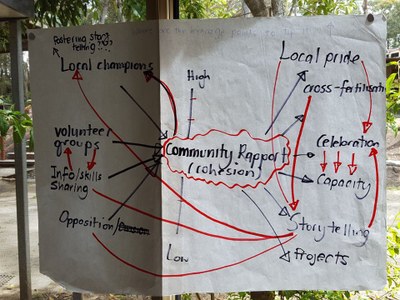 Fostering story
telling ???
Local champions
Volunteer
groups
Info/skills
Sharing
Opposition/
High
Community Rapport
(cohesion)
Low
Local pride
cross-fertilisation
Celebration
Capacity
Story telling
Projects